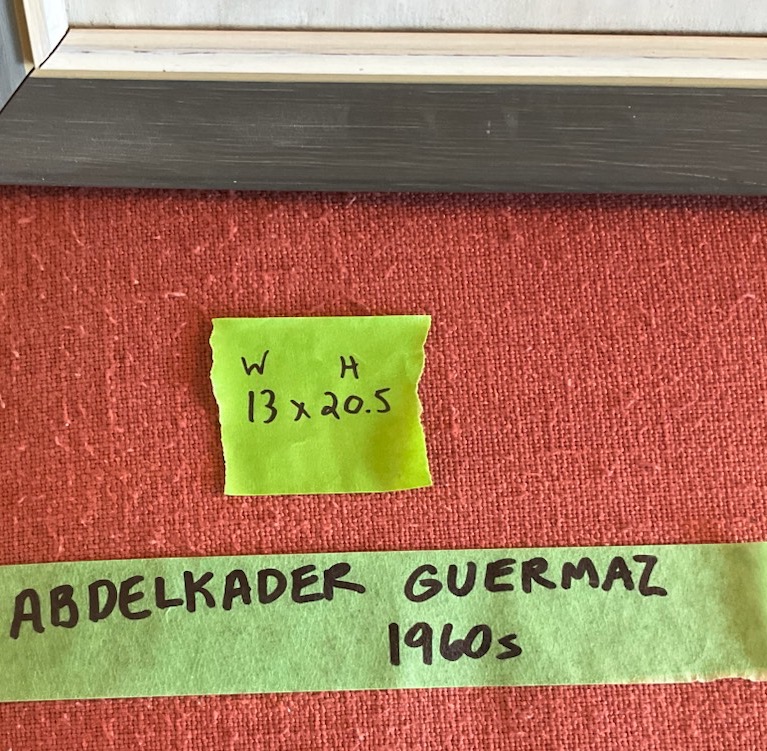 W H
13 x 20.5
ABDELKADER GUERMAZ
1960s